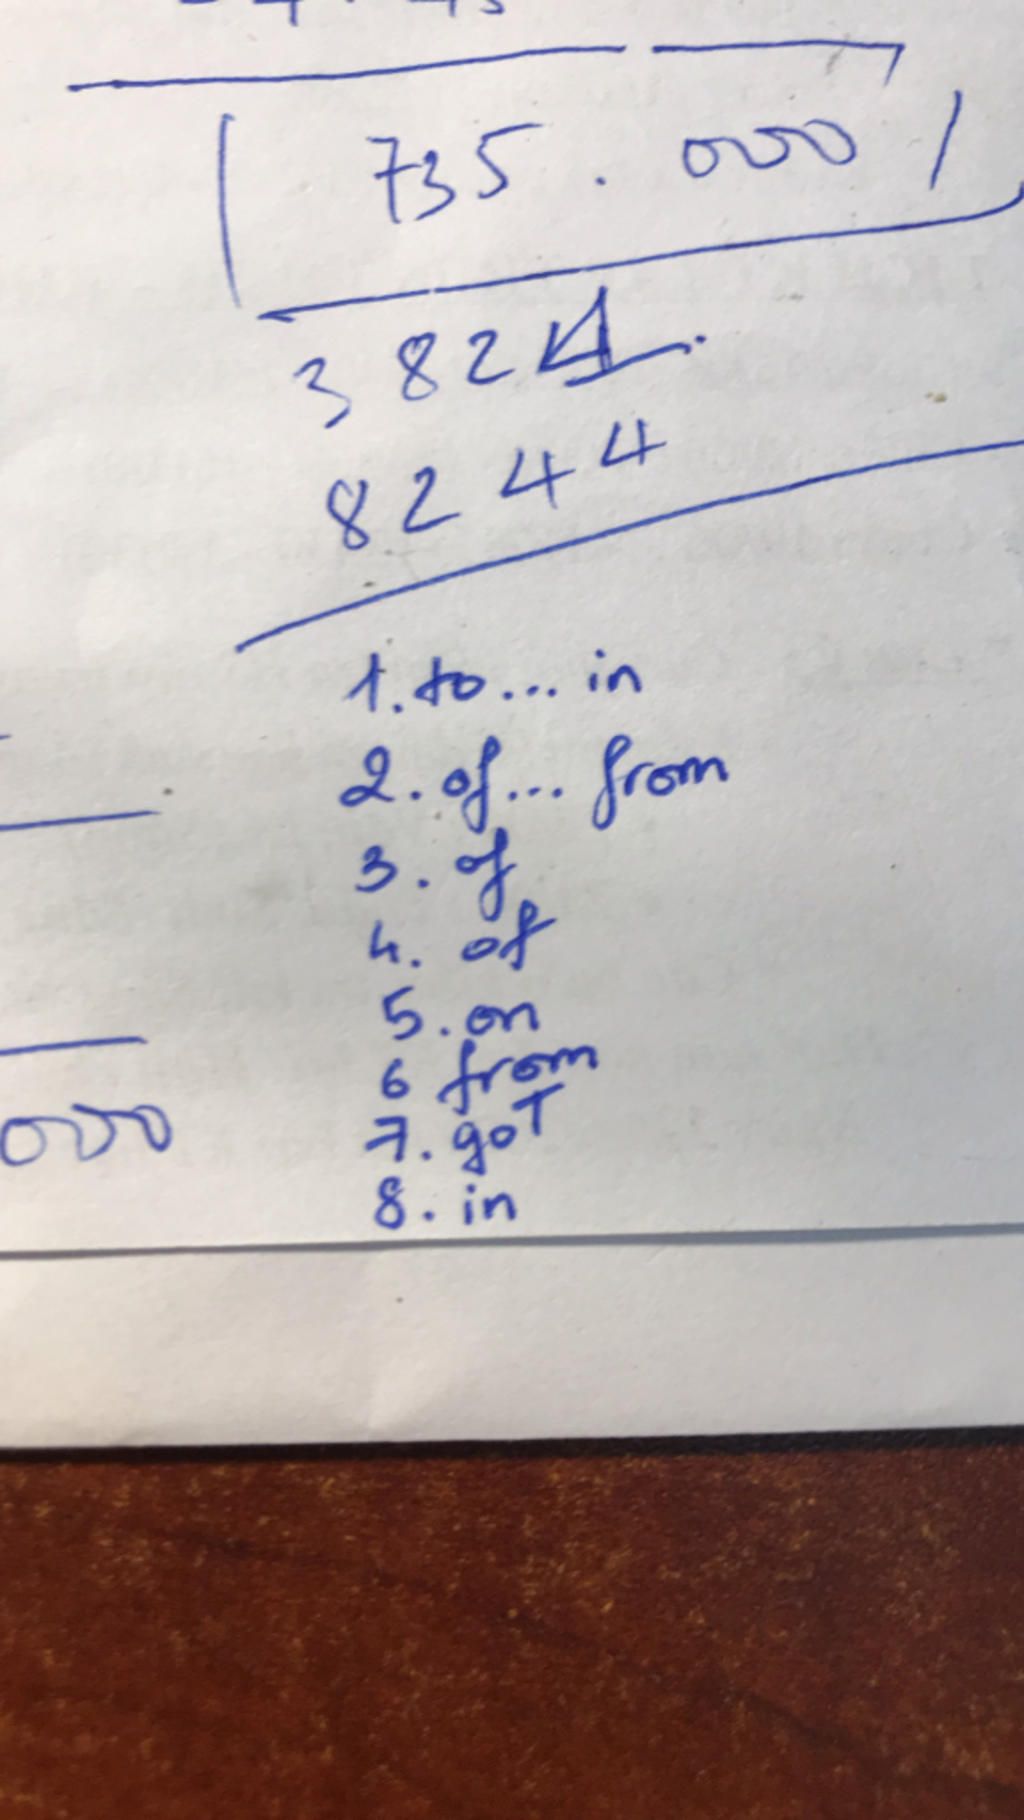 735.000
3824
8244
1. to... in
2. of... from
3. of
4. of
5. on
6 from
7. got
8. in
000